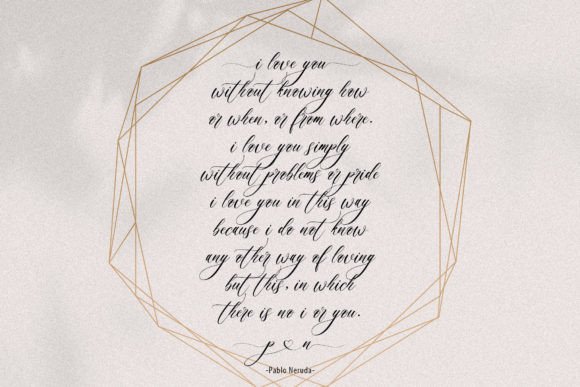 i love you
without knowing how
or when, or from where.
i love you simply
without problems or pride
i love you in this way
because i do not know
any other way of loving
but this, in which
there is no i or you.
p ♡ n
-Pablo Neruda-